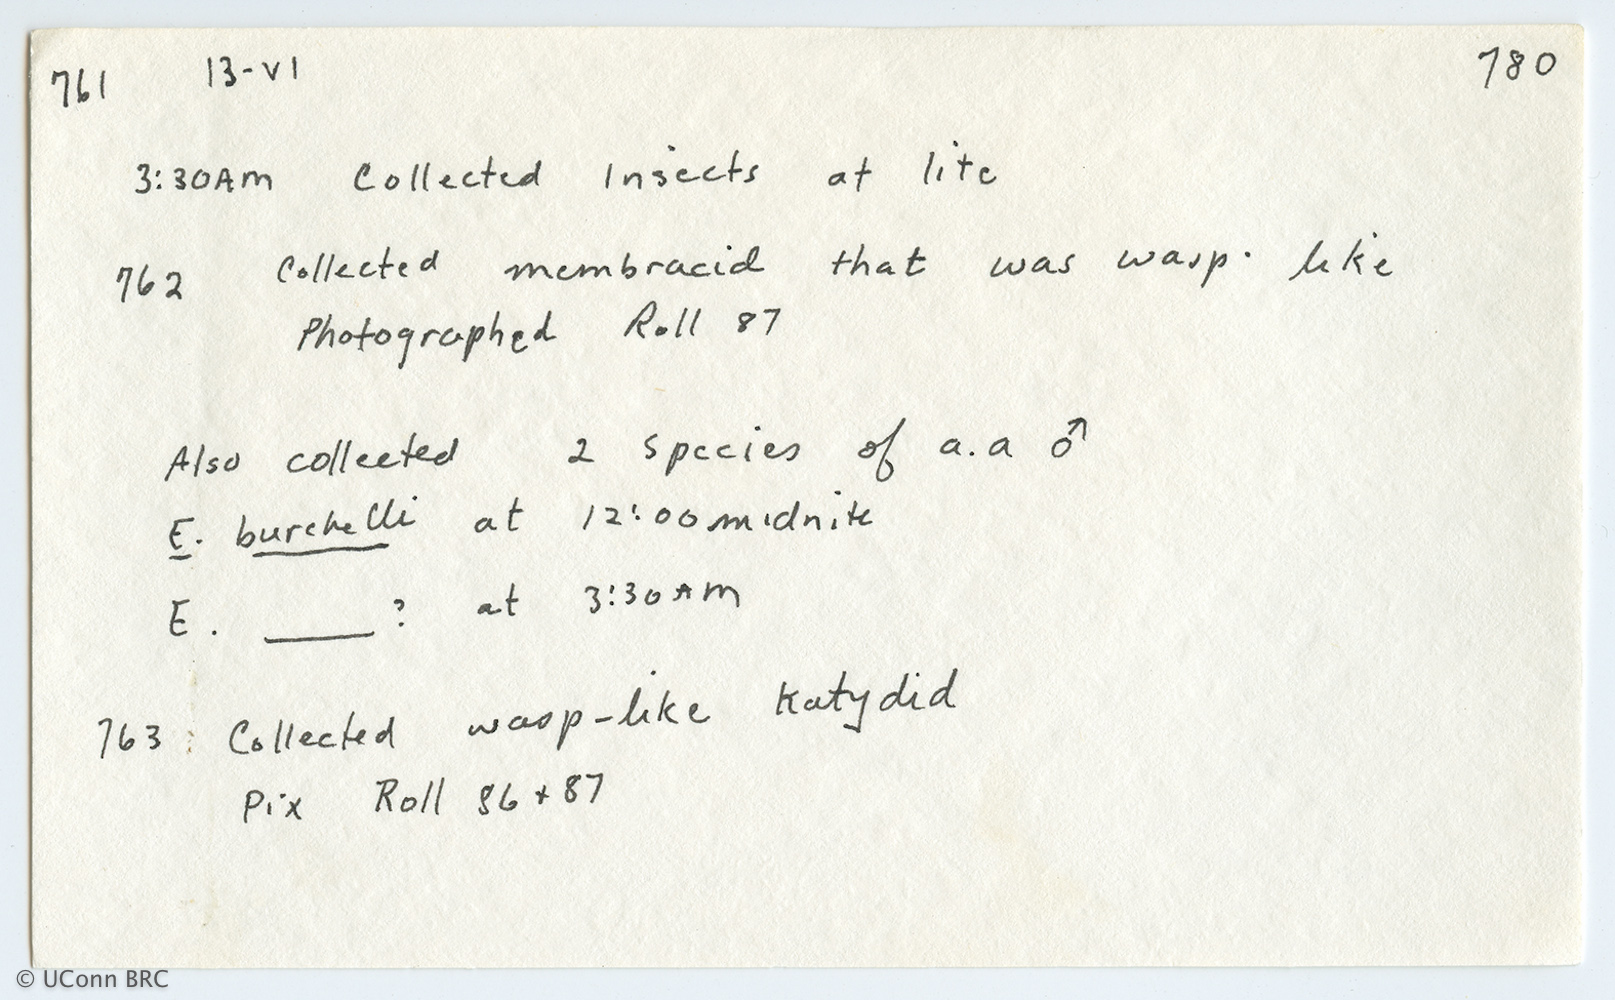 761 13-VI 780
3:30AM Collected Insects at lite
762 Collected membracid that was wasp-like
Photographed Roll 87
Also collected 2 species of a.a ♂
E. burchelli at 12:00 midnite
E. ____? at 3:30AM
763 Collected wasp-like Katydid
Pix Roll 86+87
© UConn BRC